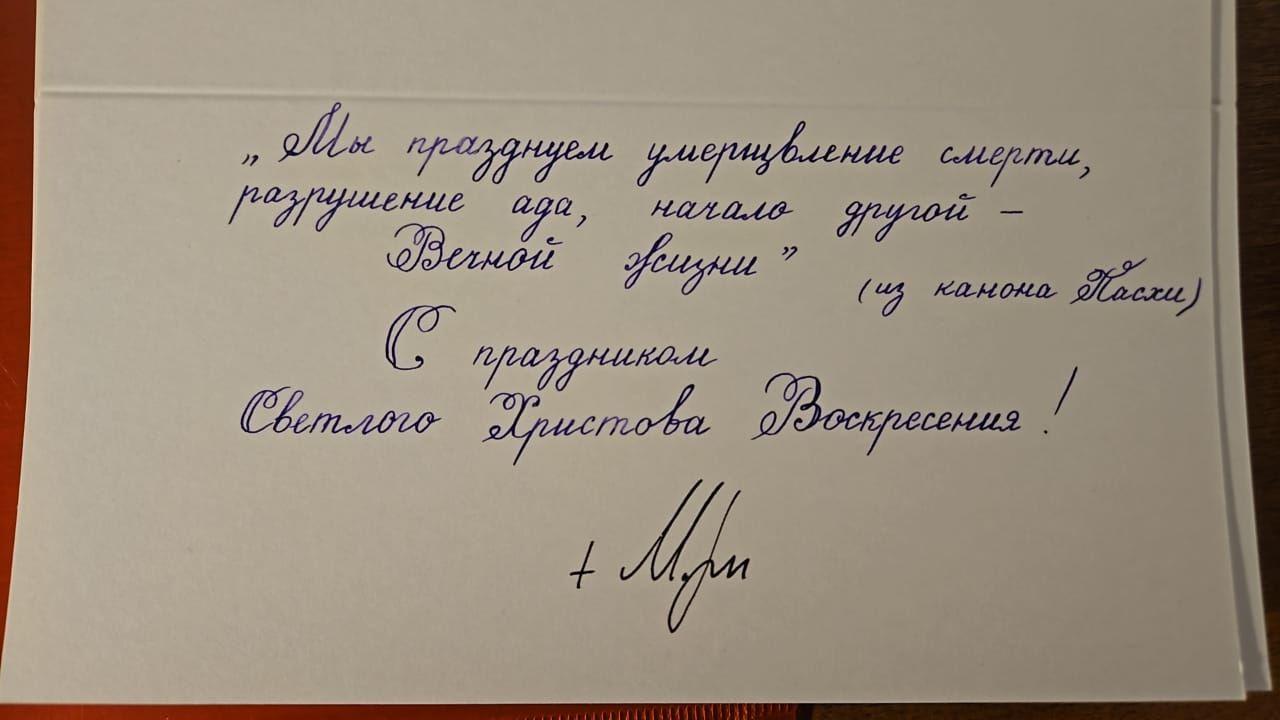 „Мы празднуем умерщвление смерти,
разрушение ада, начало другой –
Вечной жизни”
(из канона Пасхи)
С праздником
Светлого Христова Воскресения!
+